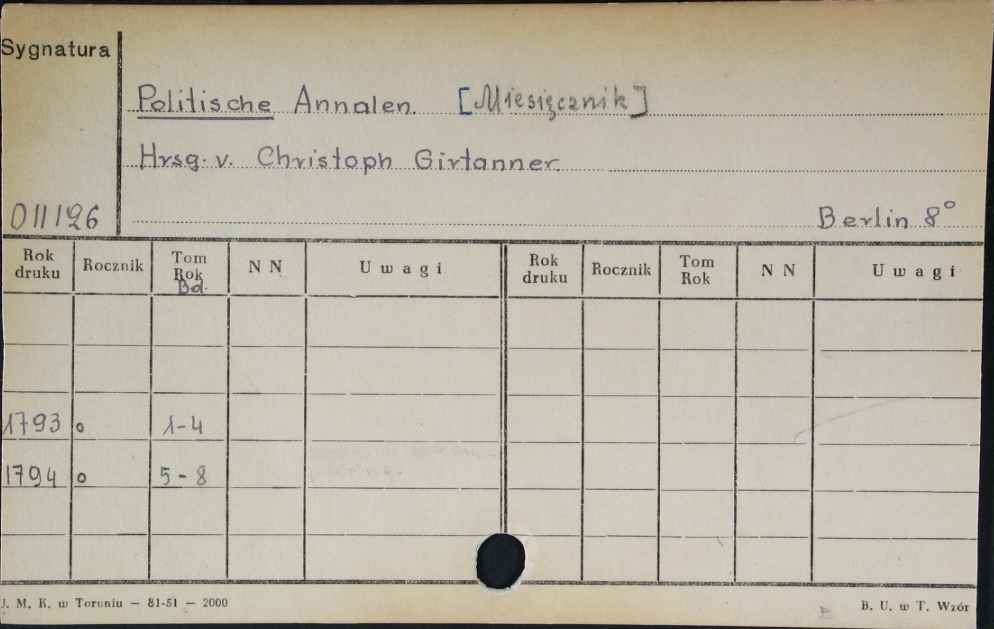 Sygnatura
Politische Annalen. [Miesięcznik]
Hrsg. v. Christoph Girtanner.
011126 Berlin 8°
Rok druku Rocznik Tom Rok Bd. N N Uwagi Rok druku Rocznik Tom Rok N N Uwagi
1793 o 1-4
1794 o 5-8
J. M. K. w Toruniu — 81-51 — 2000 B. U. w T. Wzór